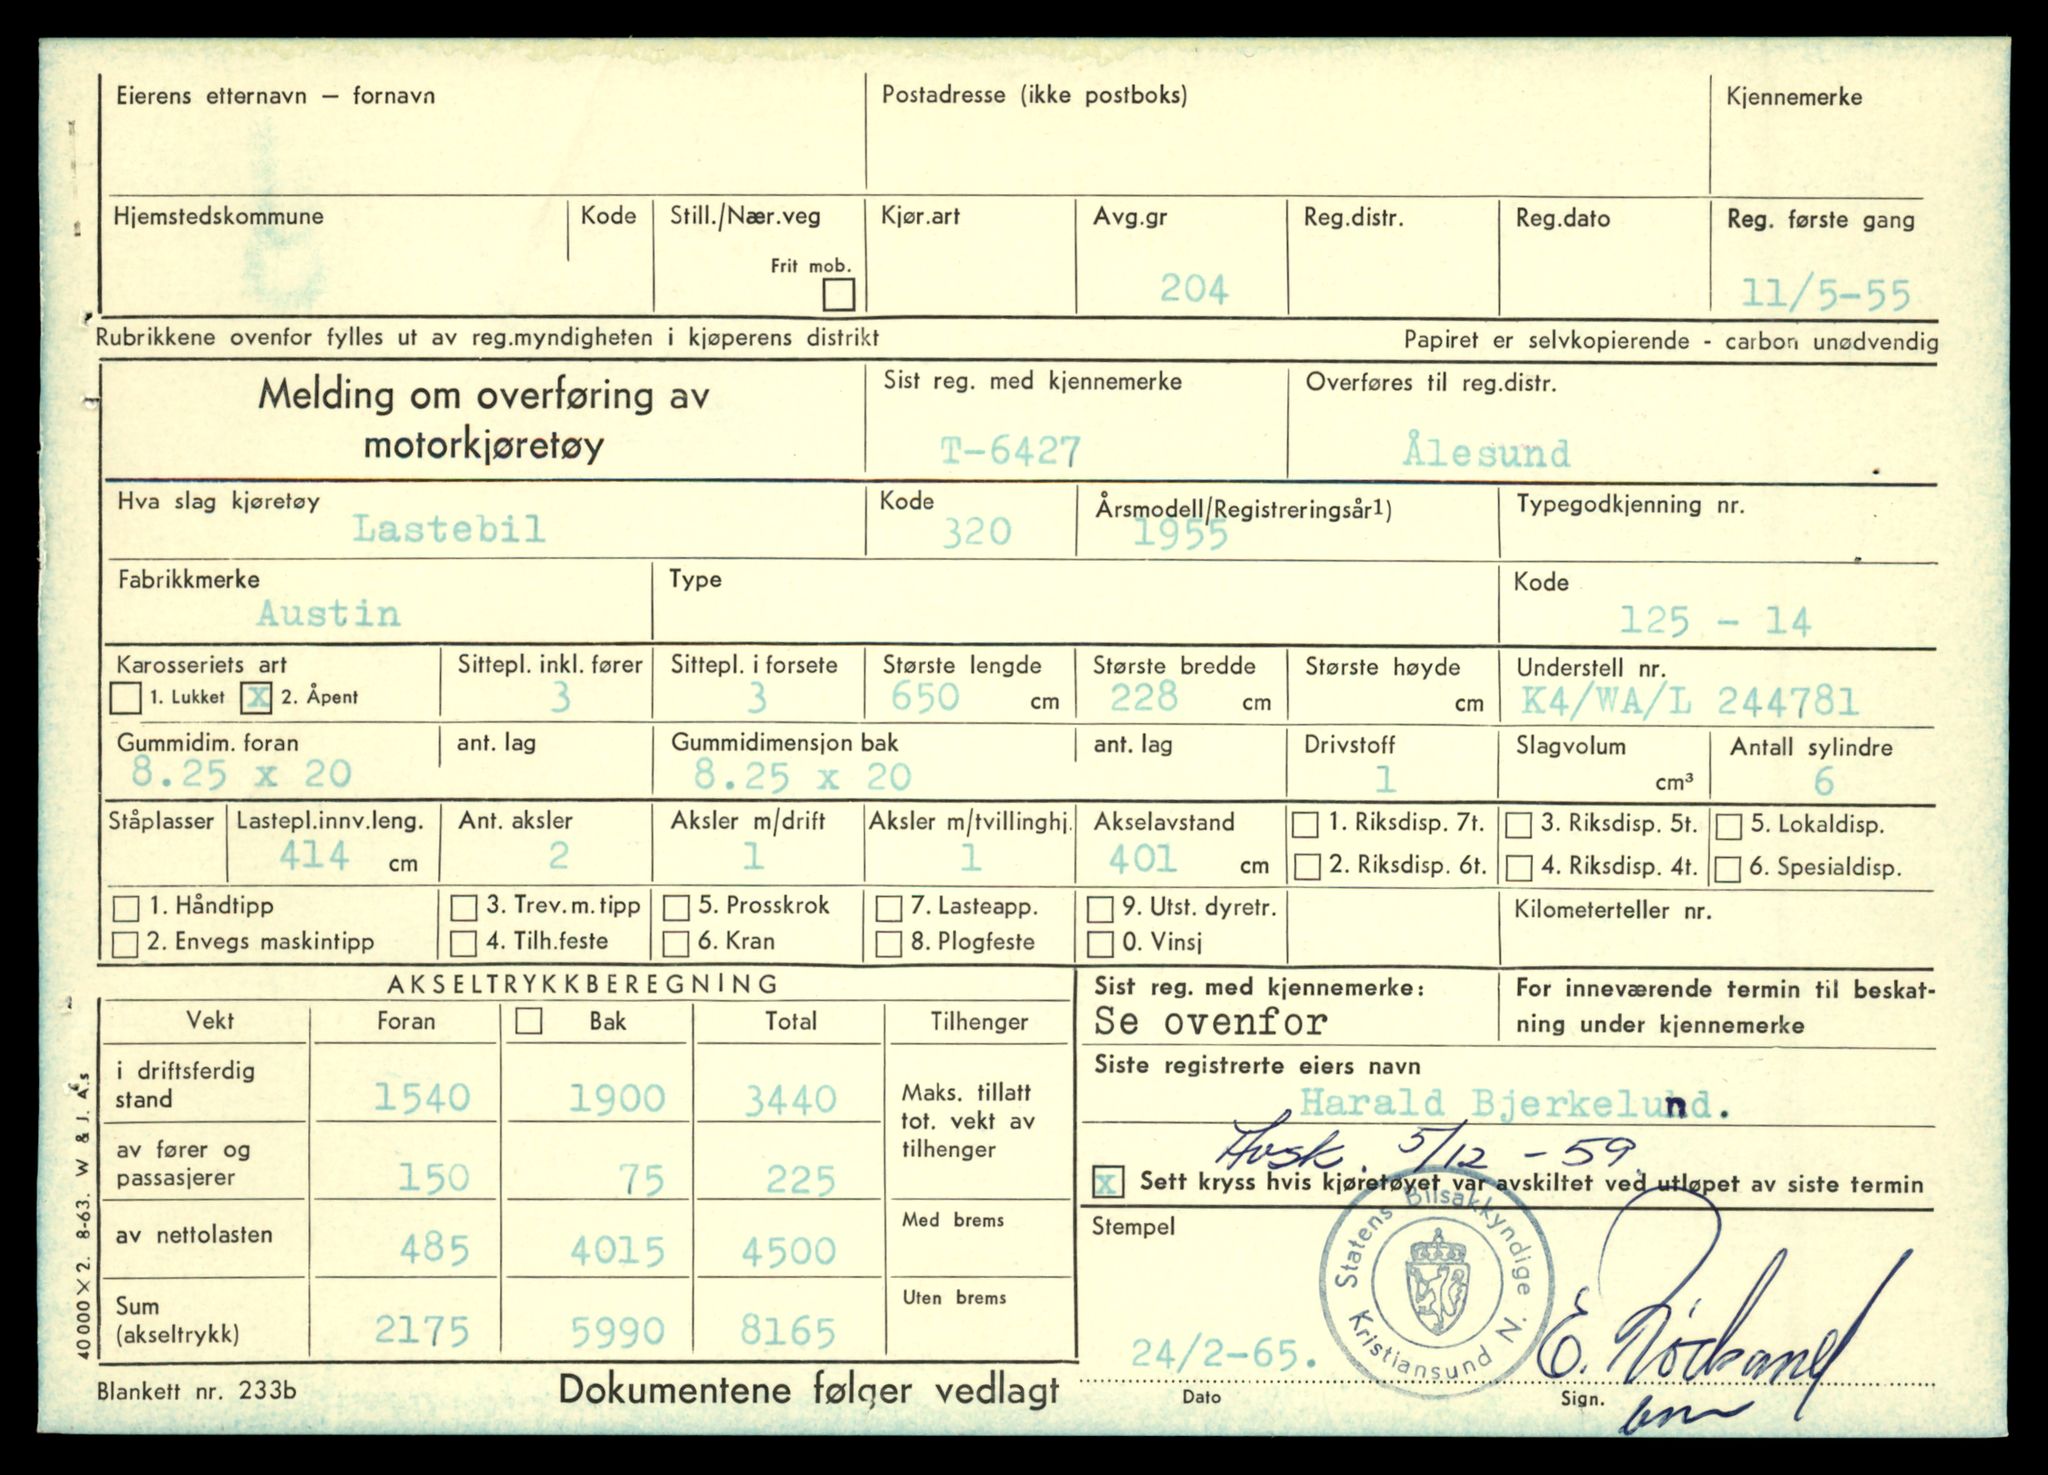 Eierens etternavn – fornavn
Postadresse (ikke postboks)
Kjennemerke
Hjemstedskommune
Kode
Still./Nær.veg
Frit mob.
Kjør.art
Avg.gr
204
Reg.distr.
Reg.dato
Reg. første gang
11/5-55
Rubrikkene ovenfor fylles ut av reg.myndigheten i kjøperens distrikt
Papiret er selvkopierende - carbon unødvendig
Melding om overføring av
motorkjøretøy
Sist reg. med kjennemerke
T-6427
Overføres til reg.distr.
Ålesund
Hva slag kjøretøy
Lastebil
Kode
320
Årsmodell/Registreringsår1)
1955
Typegodkjenning nr.
Fabrikkmerke
Austin
Type
Kode
125 - 14
Karosseriets art
1. Lukket x 2. Åpent
Sittepl. inkl. fører
3
Sittepl. i forsete
3
Største lengde
650 cm
Største bredde
228 cm
Største høyde
cm
Understell nr.
K4/WA/L 244781
Gummidim. foran
8.25 x 20
ant. lag
Gummidimensjon bak
8.25 x 20
ant. lag
Drivstoff
1
Slagvolum
cm³
Antall sylindre
6
Ståplasser
Lastepl.innv.leng.
414 cm
Ant. aksler
2
Aksler m/drift
1
Aksler m/tvillinghj.
1
Akselavstand
401 cm
1. Riksdisp. 7t.
2. Riksdisp. 6t.
3. Riksdisp. 5t.
4. Riksdisp. 4t.
5. Lokaldisp.
6. Spesialdisp.
1. Håndtipp
2. Envegs maskintipp
3. Trev.m.tipp
4. Tilh.feste
5. Prosskrok
6. Kran
7. Lasteapp.
8. Plogfeste
9. Utst. dyretr.
0. Vinsj
Kilometerteller nr.
AKSELTRYKKBEREGNING
Vekt Foran Bak Total Tilhenger
i driftsferdig
stand
1540 1900 3440
Maks. tillatt
tot. vekt av
tilhenger
av fører og
passasjerer
150 75 225
av nettolasten
485 4015 4500
Med brems
Sum
(akseltrykk)
2175 5990 8165
Uten brems
Sist reg. med kjennemerke:
Se ovenfor
For inneværende termin til beskat-
ning under kjennemerke
Siste registrerte eiers navn
Harald Bjerkelund.
Avsk. 5/12 - 59
x Sett kryss hvis kjøretøyet var avskiltet ved utløpet av siste termin
Stempel
Statens Bilsakkyndige
Kristiansund N.
24/2-65.
Dato
Sign.
40 000 X 2. 8-63. W & J. A.s
Blankett nr. 233b
Dokumentene følger vedlagt